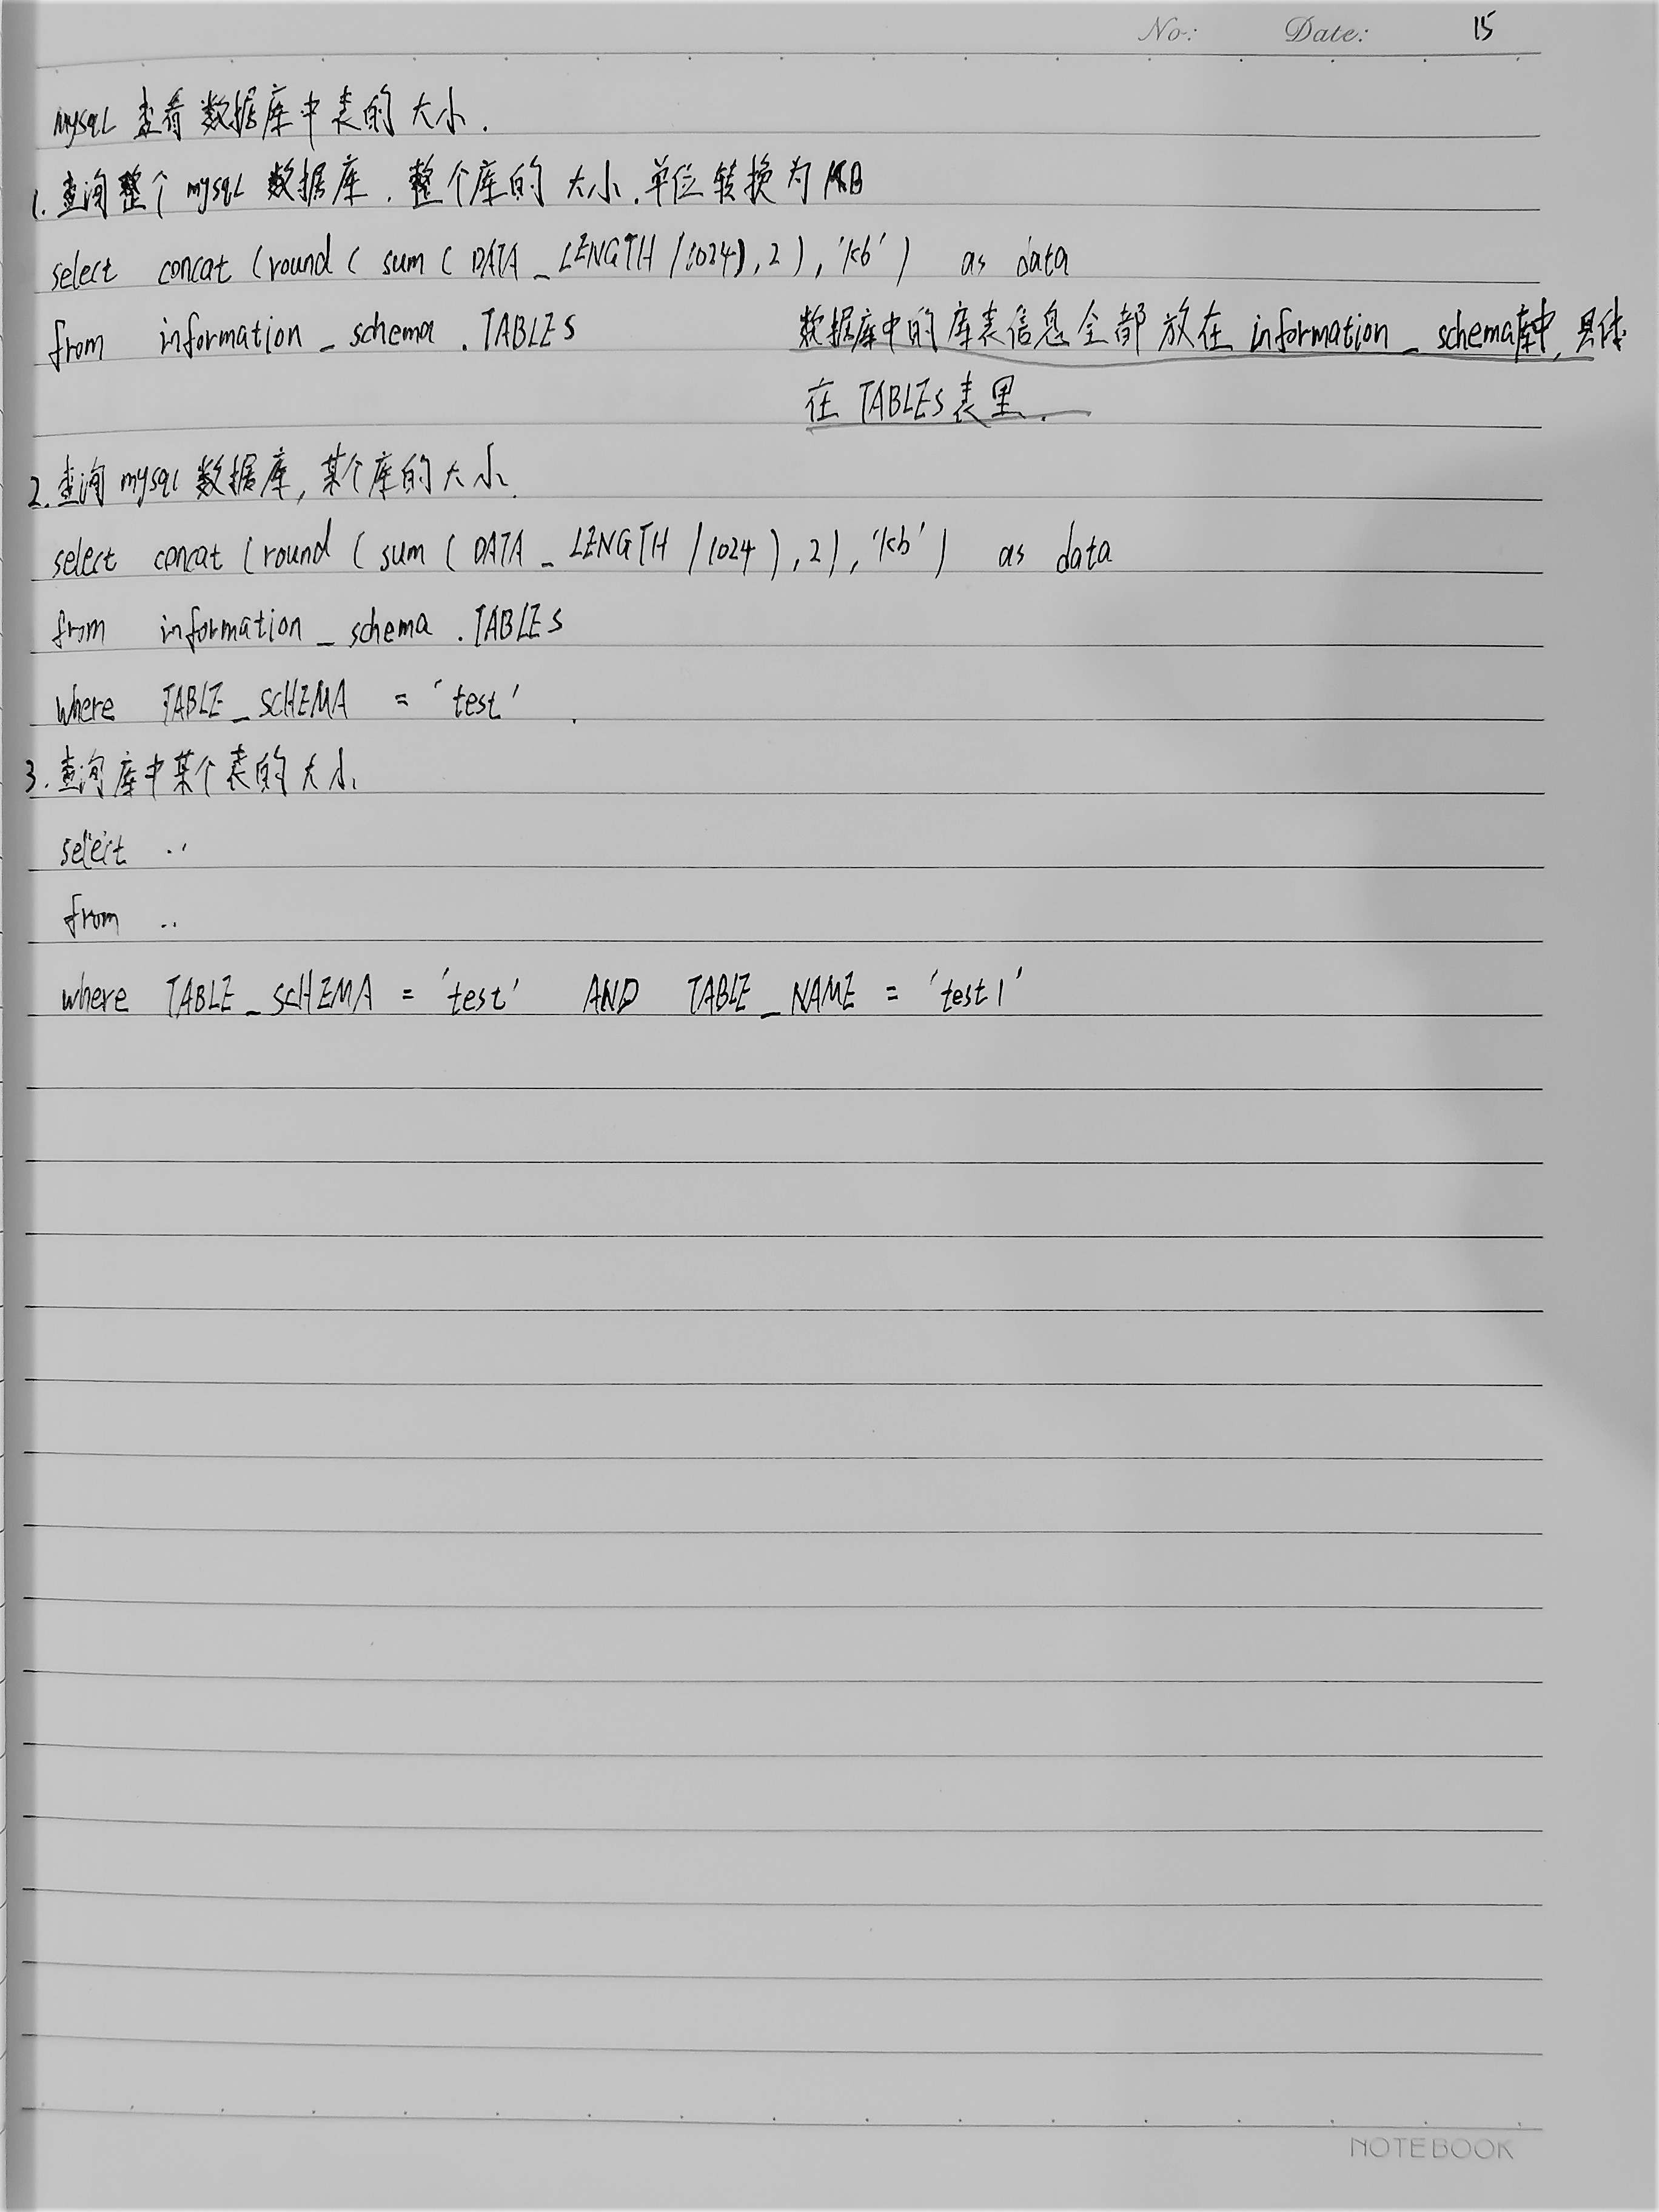 No: Date: 15
mysql 查看数据库中表的大小.
1. 查询整个 mysql 数据库. 整个库的大小.单位转换为KB
select concat (round ( sum ( DATA _ LENGTH / 1024), 2 ) , 'kb' ) as data
from information _ schema . TABLES 数据库中的库表信息全部放在 information _ schema库中, 具体
在 TABLES 表里.
2. 查询 mysql 数据库, 某个库的大小.
select concat (round ( sum ( DATA _ LENGTH / 1024 ) , 2) , 'kb' ) as data
from information _ schema . TABLES
where TABLE _ SCHEMA = 'test' .
3. 查询库中某个表的大小
select ..
from ..
where TABLE _ SCHEMA = 'test' AND TABLE _ NAME = 'test1'
NOTEBOOK